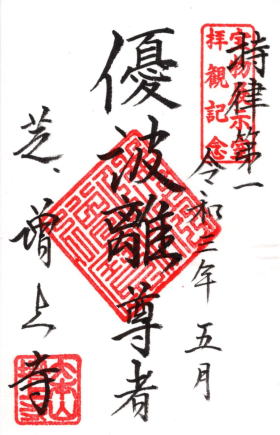 持律第一
宝物展示室
拝観記念
令和三年五月
優波離尊者
芝、増上寺
大本山